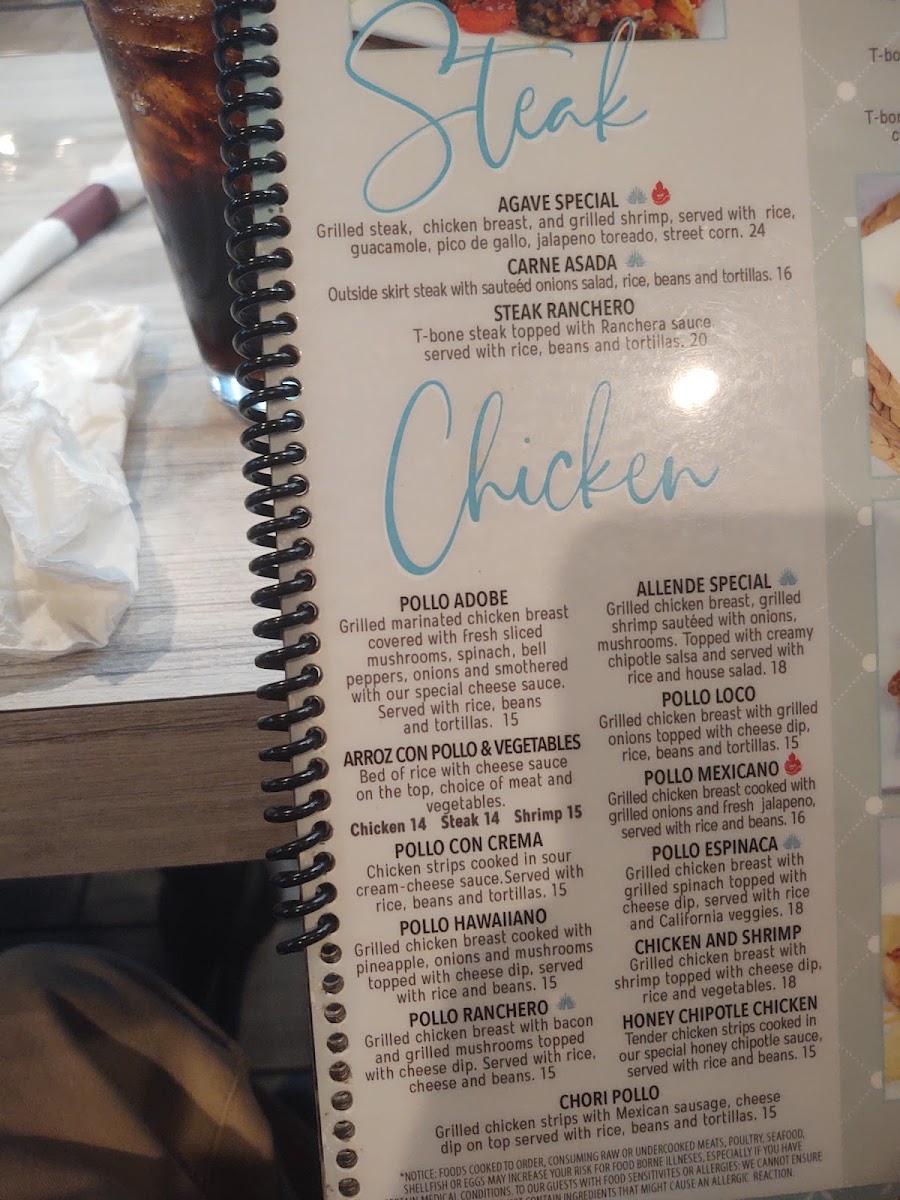 Steak
AGAVE SPECIAL
Grilled steak, chicken breast, and grilled shrimp, served with rice,
guacamole, pico de gallo, jalapeno toreado, street corn. 24
CARNE ASADA
Outside skirt steak with sauteéd onions salad, rice, beans and tortillas. 16
STEAK RANCHERO
T-bone steak topped with Ranchera sauce.
served with rice, beans and tortillas. 20
Chicken
POLLO ADOBE
Grilled marinated chicken breast
covered with fresh sliced
mushrooms, spinach, bell
peppers, onions and smothered
with our special cheese sauce.
Served with rice, beans
and tortillas. 15
ARROZ CON POLLO & VEGETABLES
Bed of rice with cheese sauce
on the top, choice of meat and
vegetables.
Chicken 14 Steak 14 Shrimp 15
POLLO CON CREMA
Chicken strips cooked in sour
cream-cheese sauce.Served with
rice, beans and tortillas. 15
POLLO HAWAIIANO
Grilled chicken breast cooked with
pineapple, onions and mushrooms
topped with cheese dip, served
with rice and beans. 15
POLLO RANCHERO
Grilled chicken breast with bacon
and grilled mushrooms topped
with cheese dip. Served with rice,
cheese and beans. 15
ALLENDE SPECIAL
Grilled chicken breast, grilled
shrimp sautéed with onions,
mushrooms. Topped with creamy
chipotle salsa and served with
rice and house salad. 18
POLLO LOCO
Grilled chicken breast with grilled
onions topped with cheese dip,
rice, beans and tortillas. 15
POLLO MEXICANO
Grilled chicken breast cooked with
grilled onions and fresh jalapeno,
served with rice and beans. 16
POLLO ESPINACA
Grilled chicken breast with
grilled spinach topped with
cheese dip, served with rice
and California veggies. 18
CHICKEN AND SHRIMP
Grilled chicken breast with
shrimp topped with cheese dip,
rice and vegetables. 18
HONEY CHIPOTLE CHICKEN
Tender chicken strips cooked in
our special honey chipotle sauce,
served with rice and beans. 15
CHORI POLLO
Grilled chicken strips with Mexican sausage, cheese
dip on top served with rice, beans and tortillas. 15
*NOTICE: FOODS COOKED TO ORDER, CONSUMING RAW OR UNDERCOOKED MEATS, POULTRY, SEAFOOD,
SHELLFISH OR EGGS MAY INCREASE YOUR RISK FOR FOOD BORNE ILLNESES, ESPECIALLY IF YOU HAVE
MEDICAL CONDITIONS. TO OUR GUESTS WITH FOOD SENSITIVITES OR ALLERGIES: WE CANNOT ENSURE
CONTAIN INGREDIENTS THAT MIGHT CAUSE AN ALLERGIC REACTION.
T-bo
T-bon
c